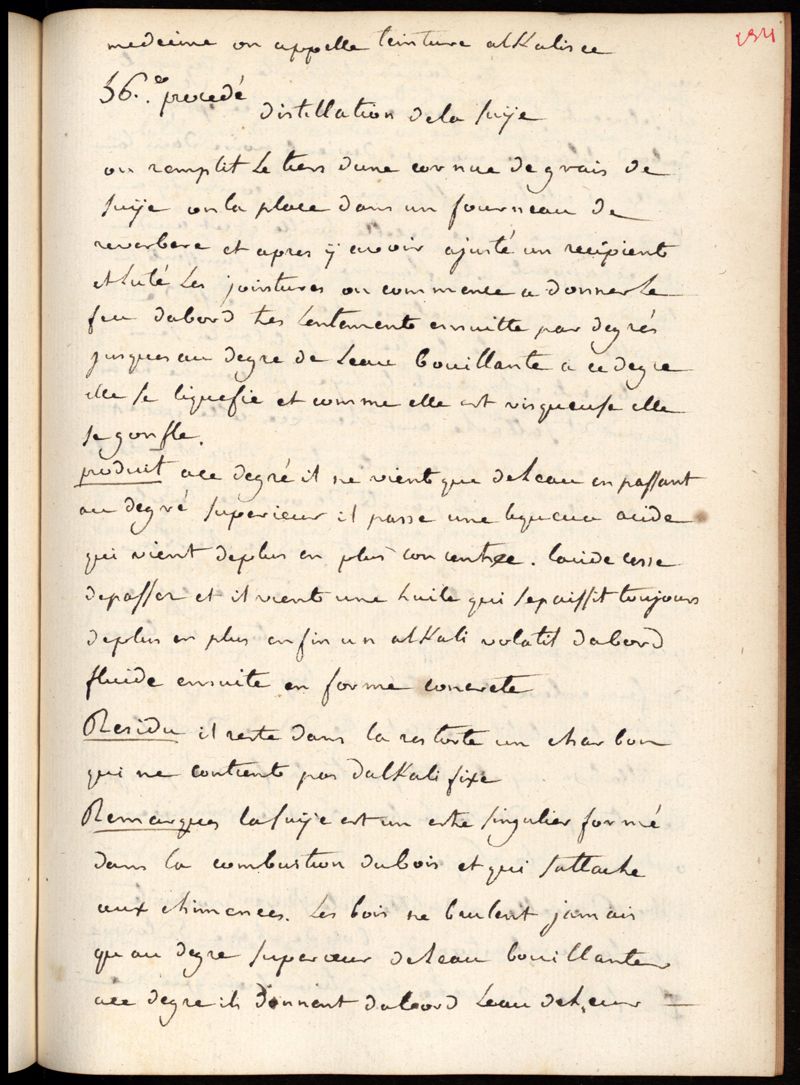 134
medecine on appelle teinture alkalisee
56.e procedé
distillation dela suÿe
on remplit Le tiers dune cornue de grais de
suÿe on la place dans un fourneau de
reverbere et apres ÿ avoir ajusté un recipient
et Luté Les jointures on commence a donner Le
feu dabord tres Lentement ensuitte par degrés
jusques au degre de Leau bouillante a ce degre
elle se liquefie et comme elle est visqueuse elle
se gonfle.
produit a ce degré il ne vient que de Leau en passant
au degré superieur il passe une liqueur acide
qui vient deplus en plus concentree. lacide cesse
depasser et il vient une huile qui sepaissit toujours
deplus en plus enfin un alkali volatil dabord
fluide ensuite en forme concrete
Residu il reste dans la restorte un charbon
qui ne contient pas dalkali fixe
Remarques la suÿe est un estre singulier formé
dans la combustion dubois et qui sattache
aux chimenees. Les bois ne brulent jamais
qu au degre superieur de Leau bouillante
a ce degre ils donnent dabord Leau de Leur